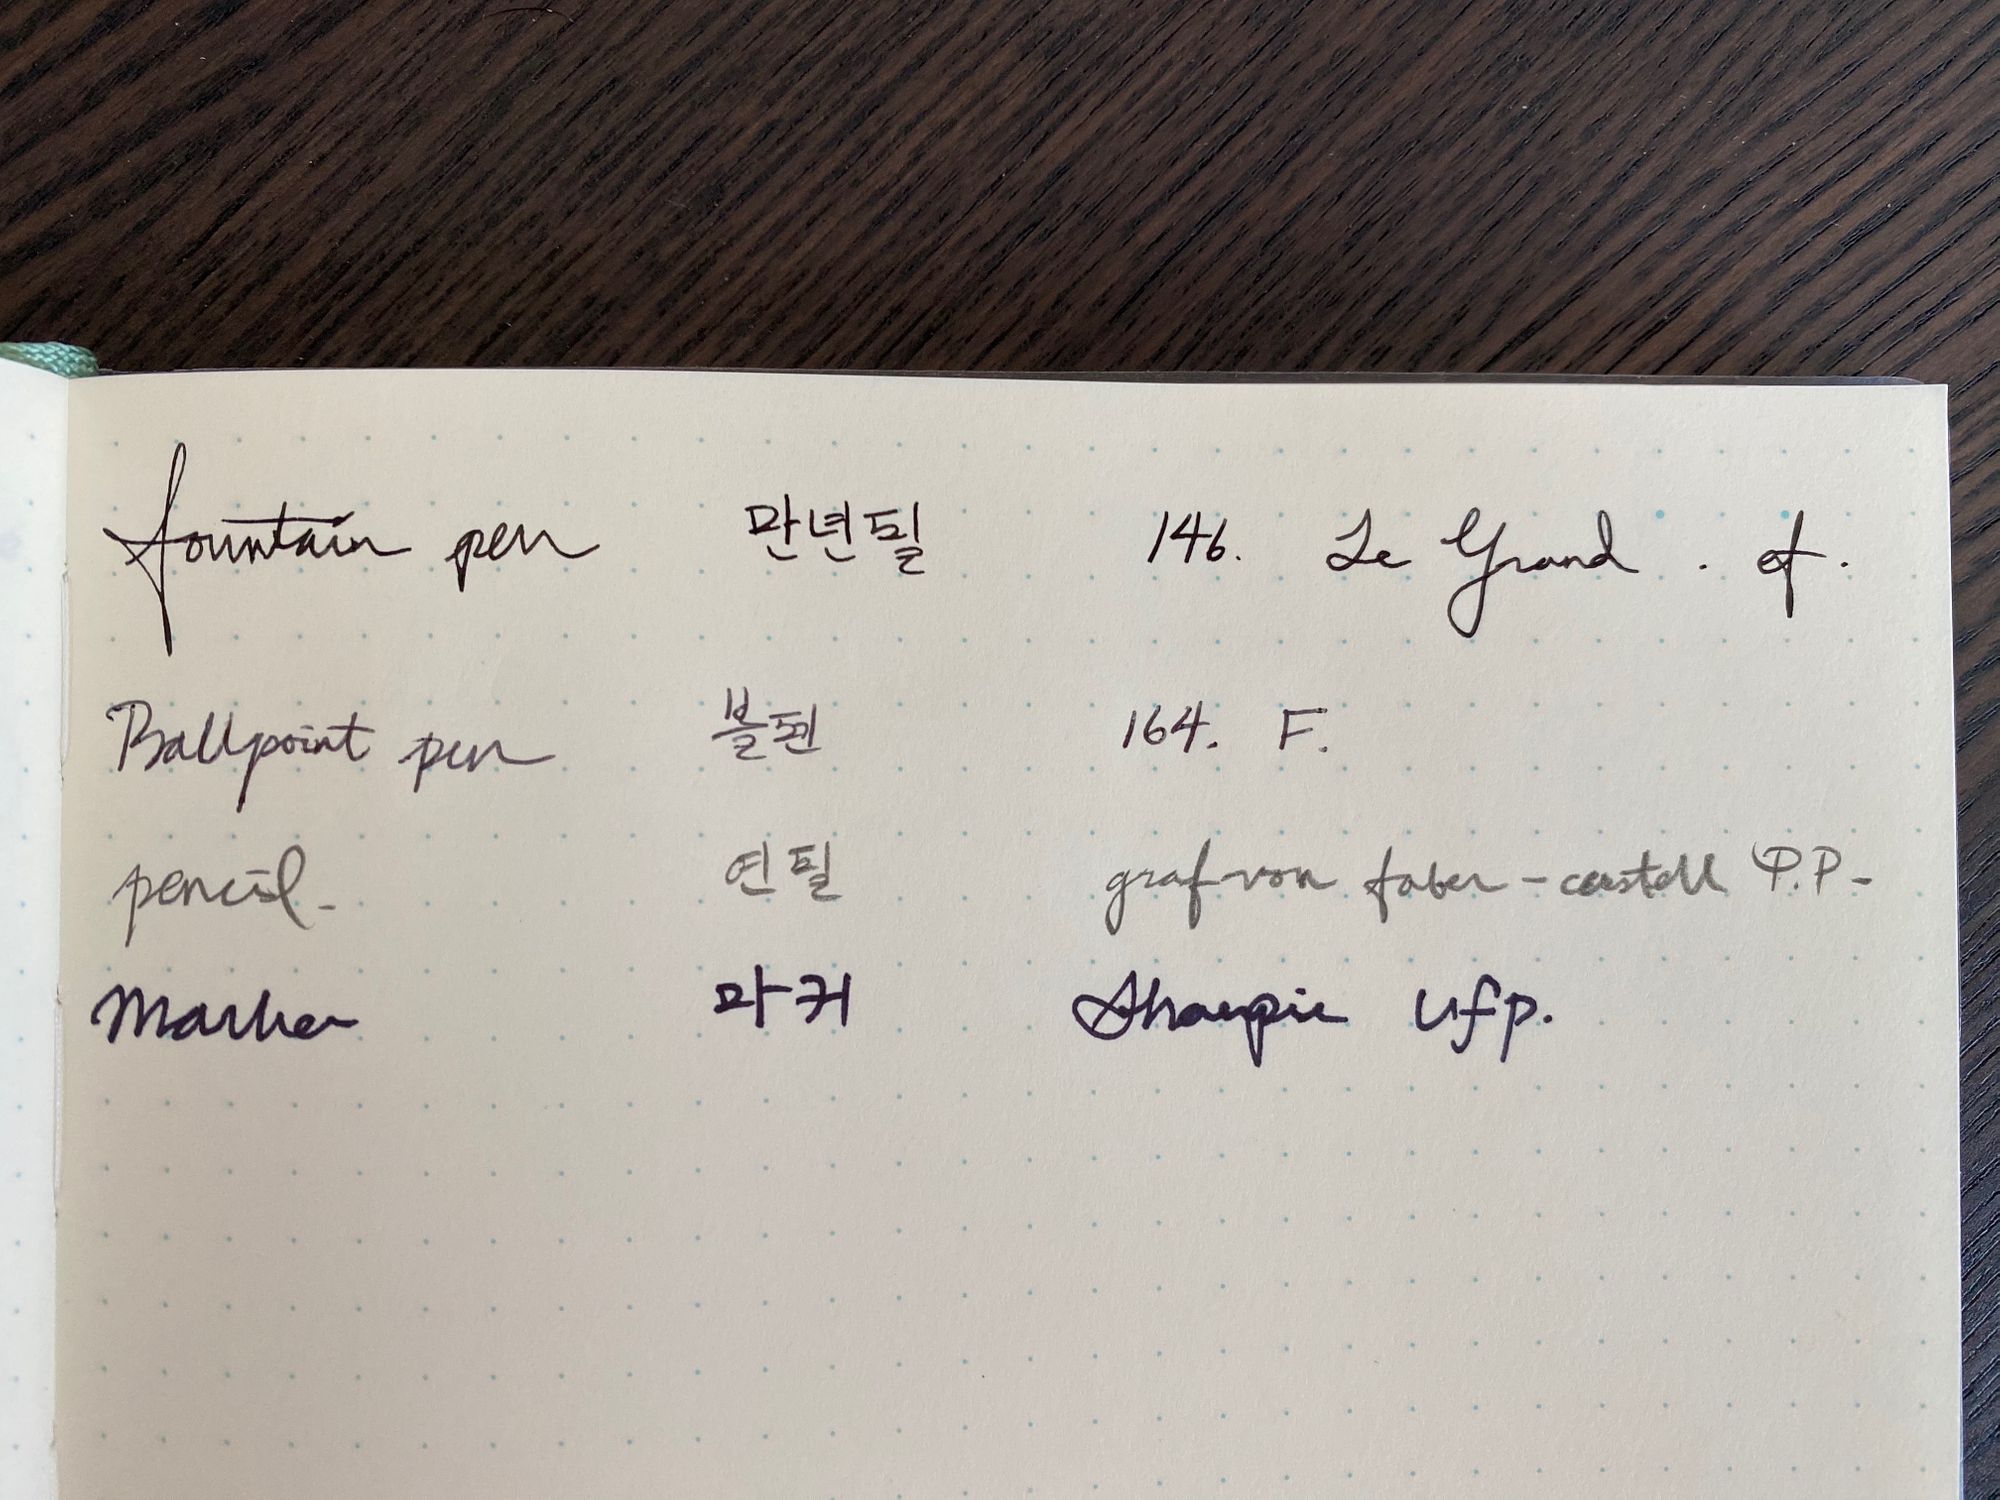 fountain pen 만년필 146. Le Grand. ef.
Ballpoint pen 볼펜 164. F.
pencil- 연필 graf von faber-castell P.P-
Marker 마커 Sharpie ufp.